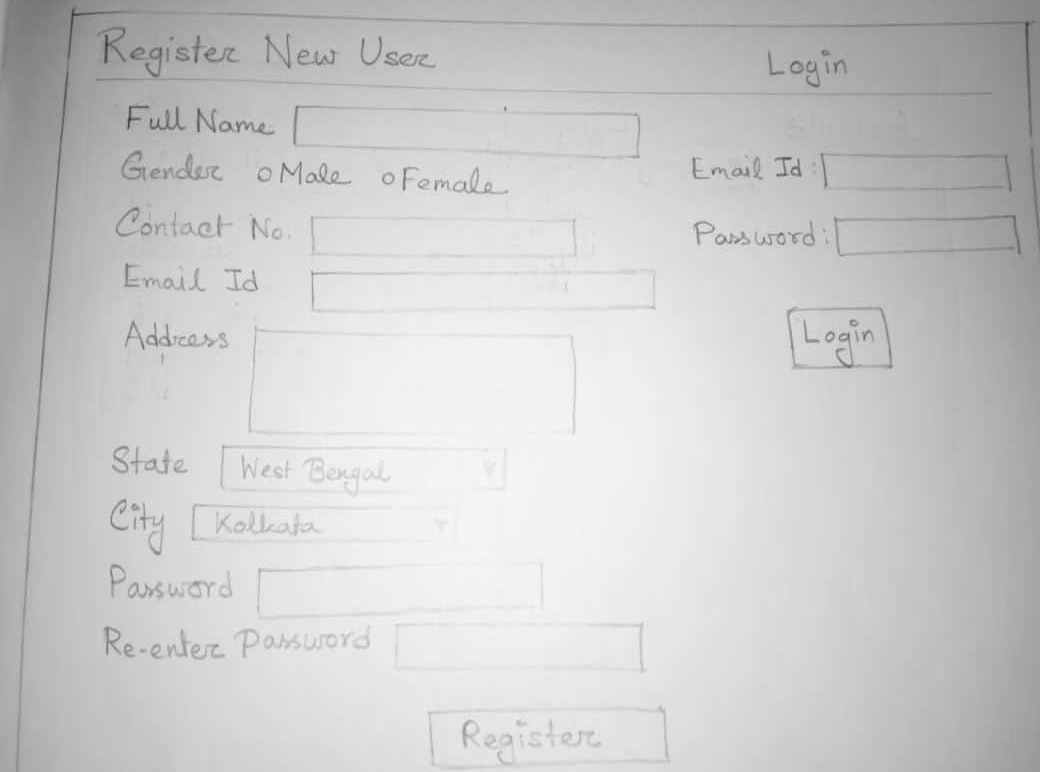 Register New User
Full Name
Gender o Male o Female
Contact No.
Email Id
Address
State West Bengal
City Kolkata
Password
Re-enter Password
Register
Login
Email Id :
Password :
Login